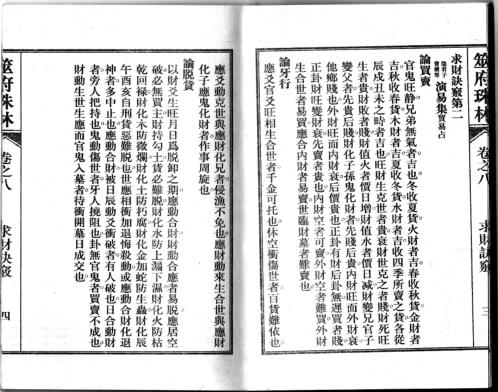 筮府珠林 卷之八 求財訣竅 三
求財訣竅第二
演易集 貿易占
論買賣
官鬼旺靜兄弟無氣者吉也冬收夏貨火財者吉春收秋貨金財者
吉秋收春貨木財者吉夏收冬貨水財者吉收四季所賣之貨各從
辰戌丑未之時者吉也旺財生克世者貴衰財世克之者賤財死旺
生者財貴收者賤財值火者價日增財值水者價日減財變兄官子
變父者先貴后賤財化子孫鬼化財者先賤后貴內財旺而外財衰
他鄉賤也外財旺而內財衰后價貴也正卦有財后卦無遲買者賤
正卦財旺變財衰先賣者貴也內財空者可賣外財空者難買外財
生合世者易買應合內財者易賣世臨財墓者難賣也
論牙行
應爻官爻旺相生合世者千金可托也休空衝傷世者百貨難依也
應爻動克世與應財化兄者侵漁不免也應財動來生合世與應財
化子應鬼化財者作事周旋也
論脫貨
以財爻生旺月日爲脫卸之期應動合財財動合應者易脫應居空
破必無買主財持勾土貨必難脫財化水防上漏下濕財化火防枯
乾回祿財化木防微爛財化土防朽腐財化金加蛇防生蟲財化辰
午酉亥自刑貨惡難脫也世應相衝加退悔殺動或應動合財化退
神者多中止也應動合財被日辰動爻衝破者有人破也日合動財
者旁人把持也鬼動傷世者牙人撓阻也卦無官鬼者買賣不成也
財動生世生應而官鬼入墓者待衝開墓日成交也
筮府珠林 卷之八 求財訣竅 四